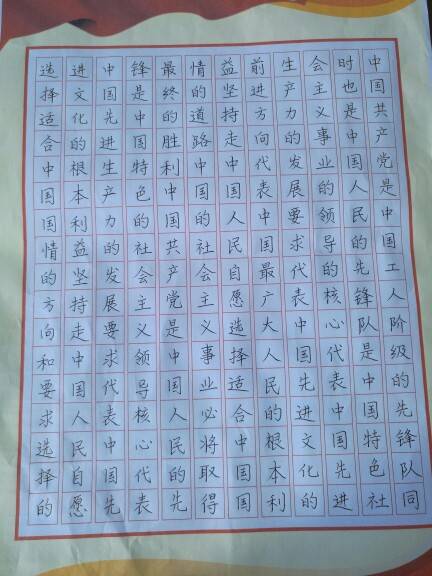 中国共产党是中国工人阶级的先锋队同
时也是中国人民的先锋队是中国特色社
会主义事业的领导的核心代表中国先进
生产力的发展要求代表中国先进文化的
前进方向代表中国最广大人民的根本利
益坚持走中国人民自愿选择适合中国国
情的道路中国的社会主义事业必将取得
最终的胜利中国共产党是中国人民的先
锋是中国特色的社会主义领导核心代表
中国先进生产力的发展要求代表中国先
进文化的根本利益坚持走中国人民自愿
选择适合中国国情的方向和要求选择的